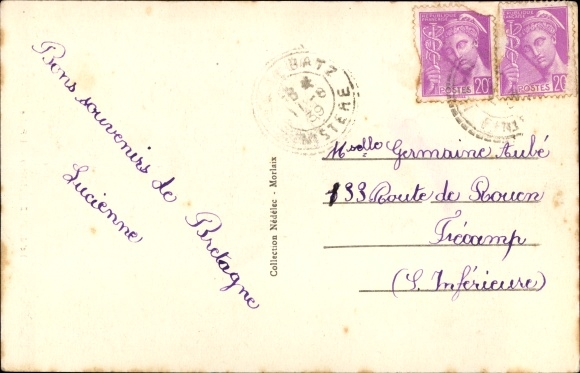 Bons souvenirs de Bretagne
Lucienne
BATZ
FINISTERE
REPUBLIQUE FRANÇAISE
POSTES 20c
REPUBLIQUE FRANÇAISE
POSTES 20c
Collection Nédélec - Morlaix
Mselle Germaine Aubé
133 Route de Rouen
Fécamp
(S. Inférieure)